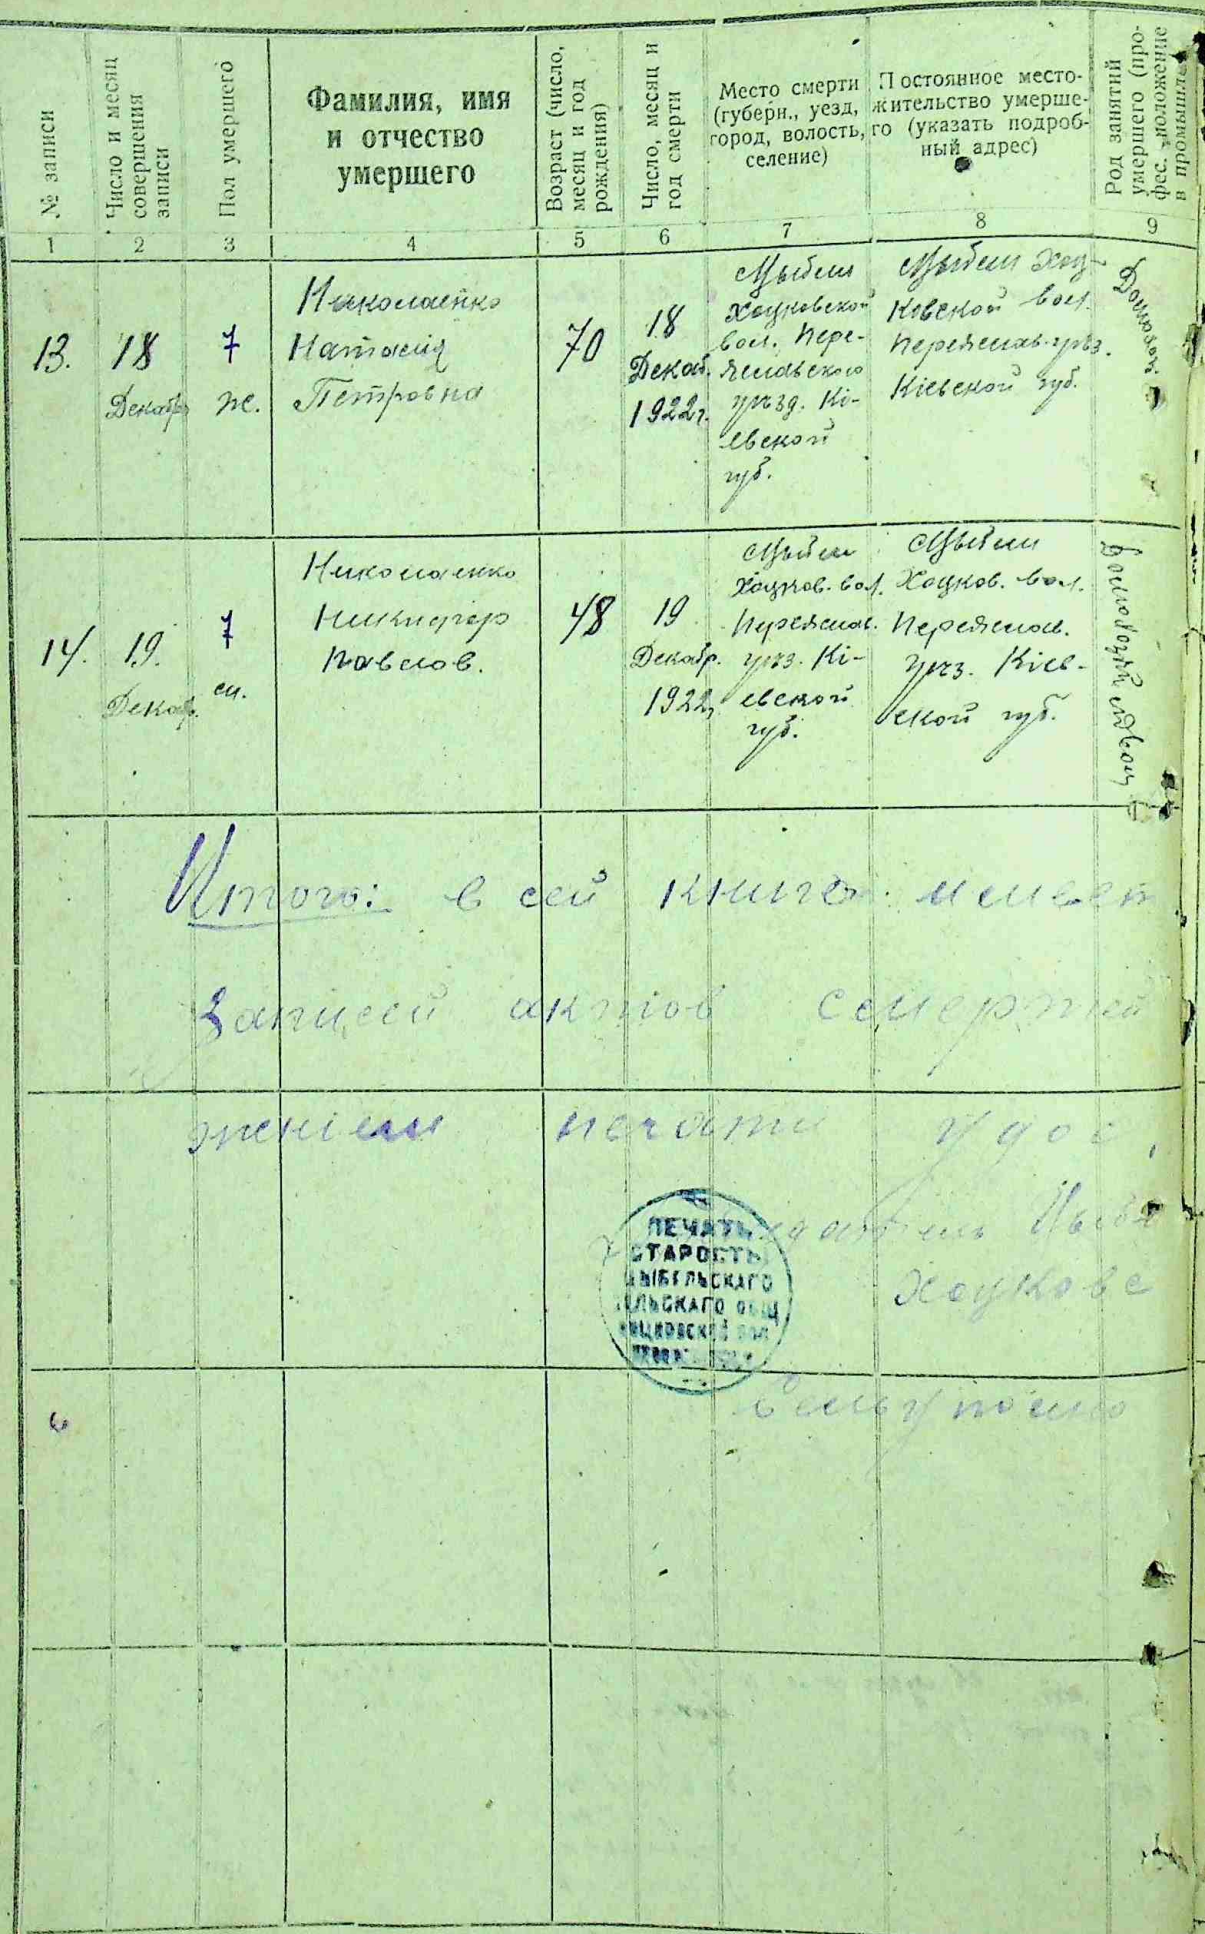 № записи
Число и месяц
совершения
записи
Пол умершего
Фамилия, имя
и отчество
умершего
Возраст (число,
месяц и год
рождения)
Число, месяц и
год смерти
Место смерти
(губерн., уезд,
город, волость,
селение)
Постоянное место-
жительство умерше-
го (указать подроб-
ный адрес)
Род занятий
умершего (про-
фес. положение
в промышл.
1 2 3 4 5 6 7 8 9
13.
18
Декабр
7
ж.
Николаенко
Наталія
Петровна
70
18
Декаб.
1922г.
Цыбли
Хоцковской
вол. Пере-
яславского
уѣзд. Кі-
евской
губ.
Цыбли Хоц-
ковской вол.
Переяслав. уѣз.
Кіевской губ.
14.
19.
Декабр.
7
м.
Николаенко
Никифор
Павлов.
48
19
Декабр.
1922г
Цыбли
Хоцков. вол.
Переяслав.
уѣз. Кі-
евской
губ.
Цыбли
Хоцков. вол.
Переяслав.
уѣз. Кіев-
ской губ.
Итого: в сей книге имеет
записей актов смертей
жніем печати удос.
Цыбл
Хоцковс
ПЕЧАТЬ
СТАРОСТЫ
ЦЫБЕЛЬСКАГО
СЕЛЬСКАГО ОБЩ
ХОЦКОВСКОЙ ВОЛ